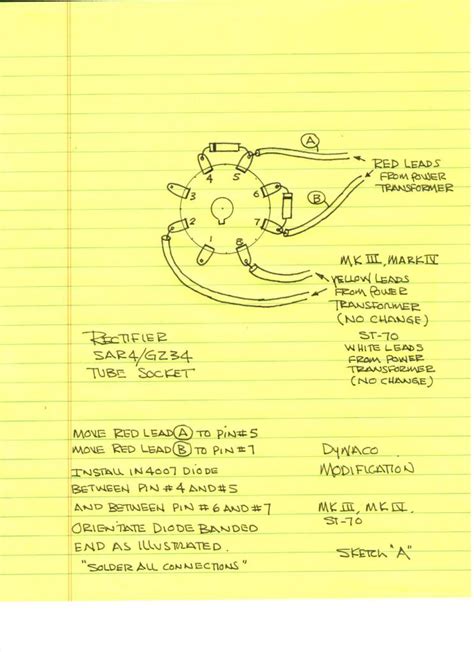 A
RED LEADS
FROM POWER
TRANSFORMER
B
4
5
3
6
2
7
1
8
MK III, MARK IV
YELLOW LEADS
FROM POWER
TRANSFORMER
(NO CHANGE)
ST-70
WHITE LEADS
FROM POWER
TRANSFORMER
(NO CHANGE)
RECTIFIER
5AR4/GZ34
TUBE SOCKET
MOVE RED LEAD A TO PIN#5
MOVE RED LEAD B TO PIN #7
INSTALL IN4007 DIODE
BETWEEN PIN #4 AND #5
AND BETWEEN PIN #6 AND #7
ORIENTATE DIODE BANDED
END AS ILLUSTRATED.
"SOLDER ALL CONNECTIONS"
DYNACO
MODIFICATION
MK III, MK IV.
ST-70
SKETCH "A"